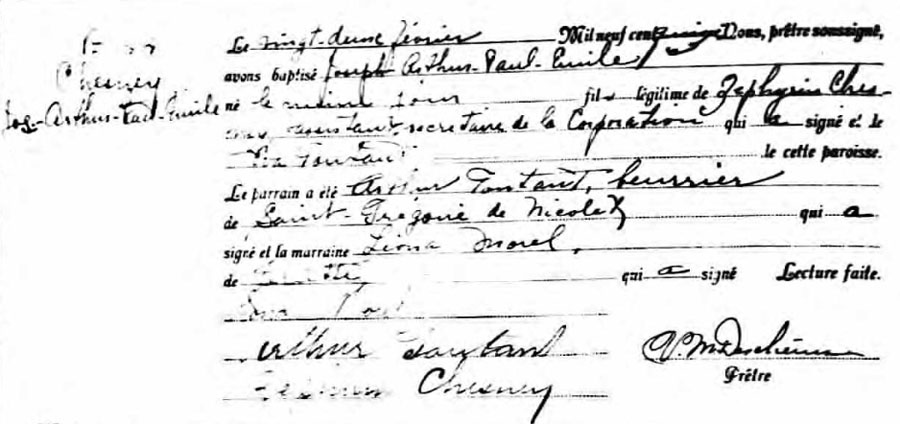 Chesney
Jos-Arthur-Paul-Emile
Le vingt-deux février Mil neuf cent quinze Nous, prêtre soussigné,
avons baptisé Joseph Arthur-Paul-Emile
né le même jour fils légitime de Zephyrin Ches-
ney assistant secretaire de la Corporation qui a signé et de
Toutant de cette paroisse.
Le parrain a été Arthur Toutant, beurrier
de Saint-Grégoire de Nicolet qui a
signé et la marraine Liona Morel,
de qui a signé Lecture faite.
Arthur Toutant
Chesney
Prêtre